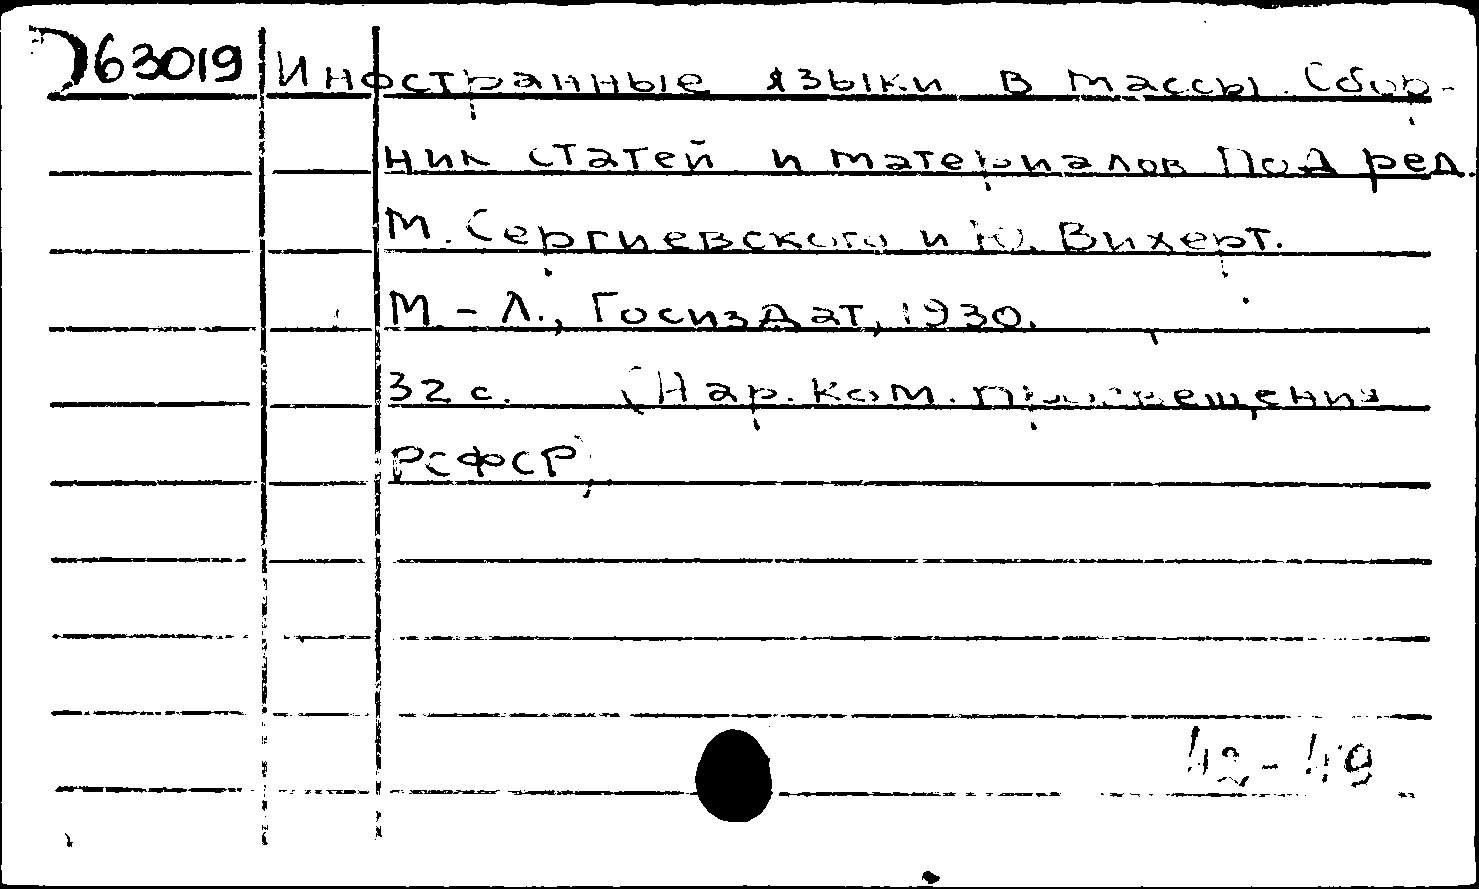 63019 Иностранные языки в массы. Сбор-
ник статей и материалов Под ред.
М. Сергиевского и Ю. Вихерт.
М. - Л., Госиздат, 1930.
32 с. (Нар. ком. просвещения
РСФСР)
42-49